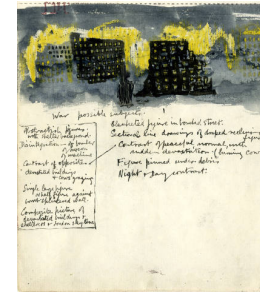 War possible subjects.
Abstraction figures
with shelter background.
Disintegration - of bomber
of moon
of machine
Contrast of opposites -
demolished buildings
& cows grazing
Single large figure
against
background wall.
Composite picture of
devastated buildings &
shelterers & London skyline
Blanketed figure in bombed street.
Sectional line drawings of draped reclining figures
Contrast of peaceful normal with
sudden devastation (burning cows
Figures pinned under debris
Night & Day contrast.